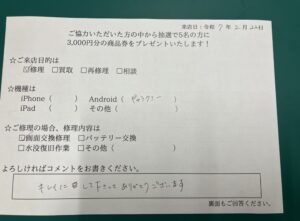 来店日:令和 7年 2月 22日
ご協力いただいた方の中から抽選で5名の方に
3,000円分の商品券をプレゼントいたします!
☆ご来店目的は
☑修理 □買取 □再修理 □相談
☆機種は
iPhone( ) Android( ギャラクシー )
iPad( ) その他( )
☆ご修理の場合、修理内容は
☑画面交換修理 □バッテリー交換
□水没復旧作業 □その他( )
よろしければコメントをお書きください。
キレイに 直して下さって ありがとうございます
裏面もご回答ください。